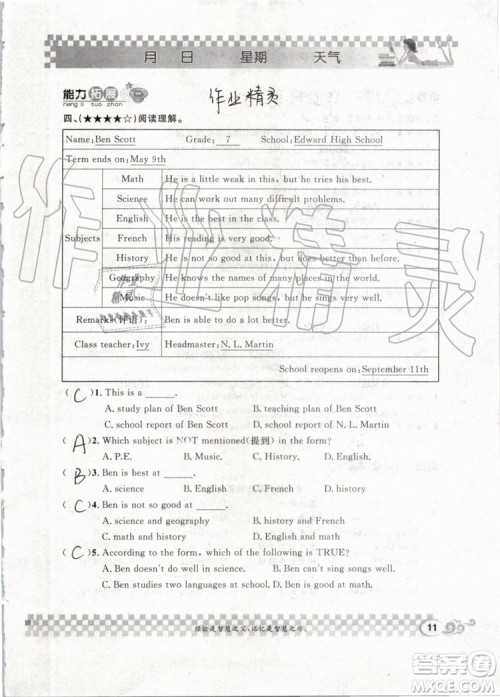 月 日 星期 天气
能力拓展
neng li tuo zhan
作业精灵
四、(★★★★☆)阅读理解。
Name: Ben Scott Grade: 7 School: Edward High School
Term ends on: May 9th
Subjects
Math He is a little weak in this, but he tries his best.
Science He can work out many difficult problems.
English He is the best in the class.
French His reading is very good.
History He is not so good at this, but does better than before.
Geography He knows the names of many places in the world.
Music He doesn't like pop songs, but he sings very well.
Remarks(评语): Ben is able to do a lot better.
Class teacher: Ivy Headmaster: N. L. Martin
School reopens on: September 11th
( C )1. This is a ______.
A. study plan of Ben Scott B. teaching plan of Ben Scott
C. school report of Ben Scott D. school report of Martin
( A )2. Which subject is NOT mentioned(提到) in the form?
A. P.E. B. Music. C. History. D. English.
( B )3. Ben is best at ______.
A. science B. English C. French D. history
( C )4. Ben is not so good at ______.
A. science and geography B. history and French
C. math and history D. English and math
( C )5. According to the form, which of the following is TRUE?
A. Ben doesn't do well in science. B. Ben can't sing songs.
C. Ben studies two languages at school. D. Ben is good at math.
经验是智慧之父,记忆是智慧之母。
11
作业精灵
作业精灵
答案圈